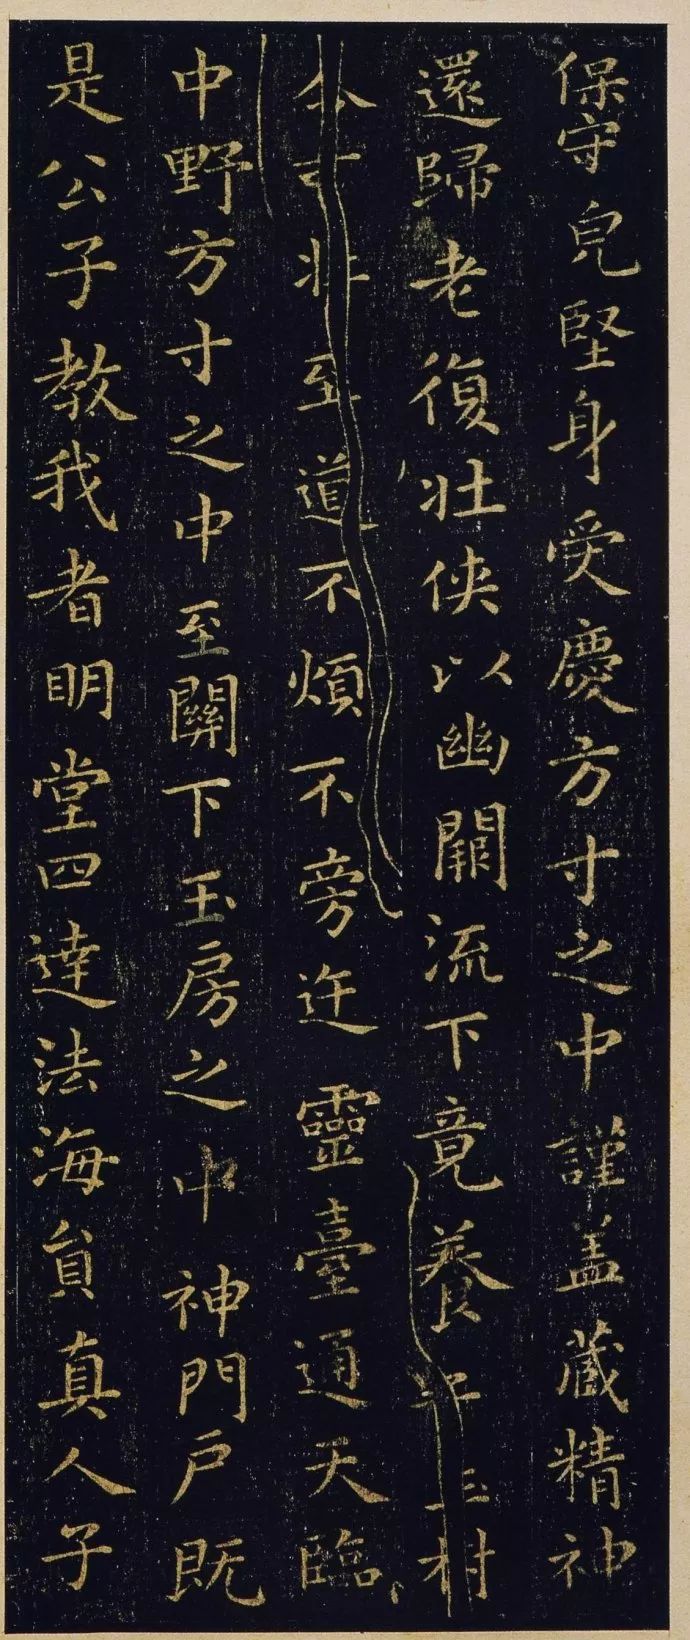 保守皃堅身受慶方寸之中謹盖藏精神
還歸老復壯俠以幽闕流下竟養玉樹
不煩不旁迕靈臺通天臨
中野方寸之中至關下玉房之中神門戶既
是公子教我者明堂四達法海員真人子